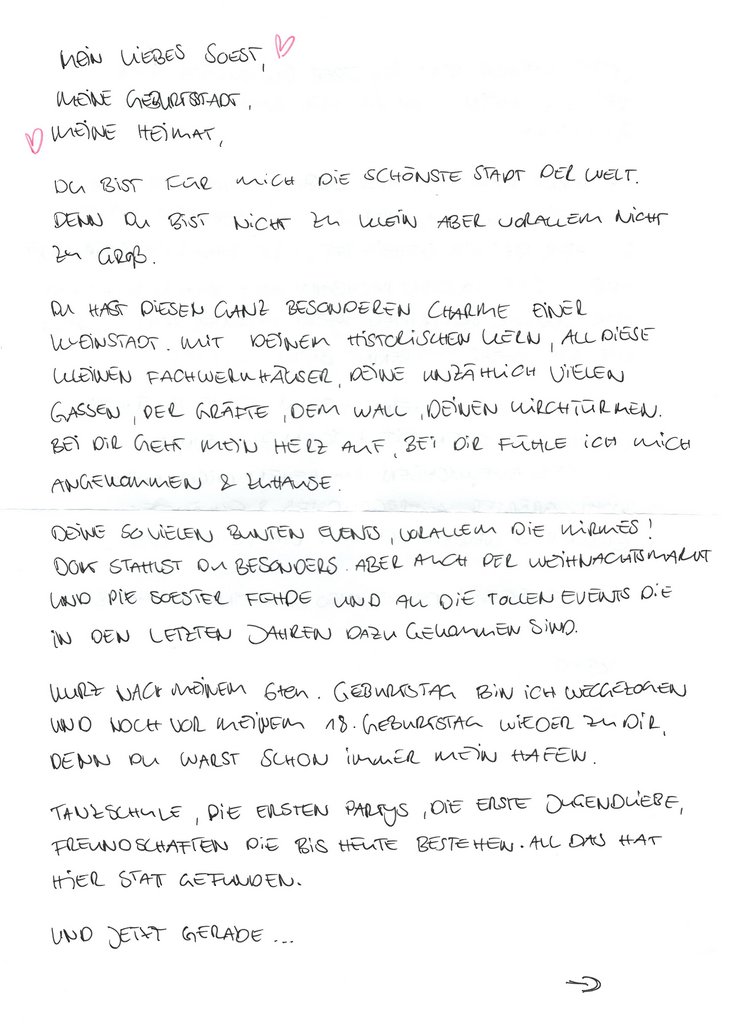 MEIN LIEBES SOEST,
MEINE GEBURTSSTADT,
MEINE HEIMAT,
DU BIST FÜR MICH DIE SCHÖNSTE STADT DER WELT.
DENN DU BIST NICHT ZU KLEIN ABER VORALLEM NICHT
ZU GROß.
DU HAST DIESEN GANZ BESONDEREN CHARME EINER
KLEINSTADT. MIT DEINEM HISTORISCHEN KERN, ALL DIESE
KLEINEN FACHWERKHÄUSER, DEINE UNZÄHLICH VIELEN
GASSEN, DER GRÄFTE, DEM WALL, DEINEN KIRCHTÜRMEN.
BEI DIR GEHT MEIN HERZ AUF, BEI DIR FÜHLE ICH MICH
ANGEKOMMEN & ZUHAUSE.
DEINE SO VIELEN BUNTEN EVENTS, VORALLEM DIE KIRMES!
DORT STAHLST DU BESONDERS. ABER AUCH DER WEIHNACHTSMARKT
UND DIE SOESTER FEHDE UND ALL DIE TOLLEN EVENTS DIE
IN DEN LETZTEN JAHREN DAZU GEKOMMEN SIND.
KURZ NACH MEINEM 6ten. GEBURTSTAG BIN ICH WEGGEZOGEN
UND NOCH VOR MEINEM 18. GEBURTSTAG WIEDER ZU DIR,
DENN DU WARST SCHON IMMER MEIN HAFEN.
TANZSCHULE, DIE ERSTEN PARTYS, DIE ERSTE JUGENDLIEBE,
FREUNDSCHAFTEN DIE BIS HEUTE BESTEHEN. ALL DAS HAT
HIER STAT GEFUNDEN.
UND JETZT GERADE...